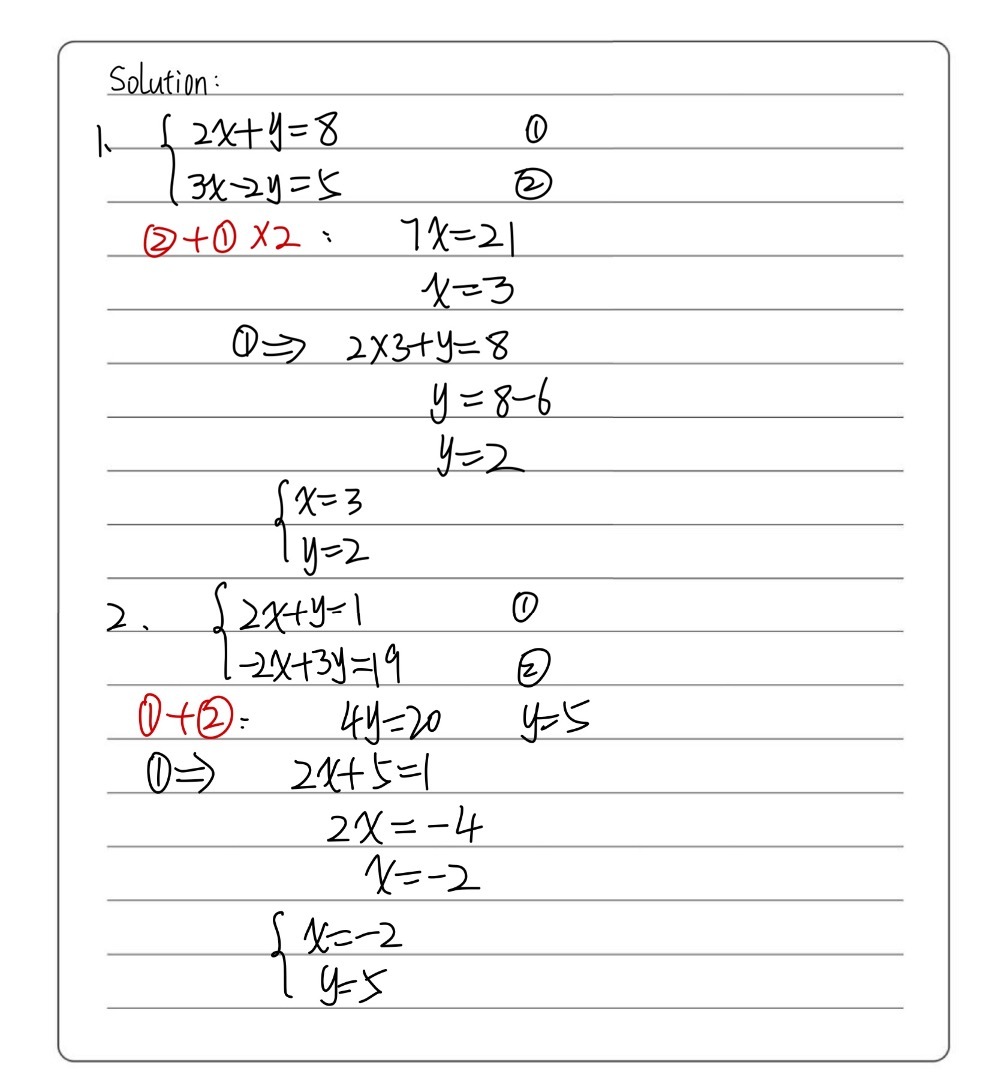 Solution:
1. { 2x+y=8 ①
3x-2y=5 ②
②+①×2: 7x=21
x=3
①⇒ 2×3+y=8
y=8-6
y=2
{ x=3
y=2
2. { 2x+y=1 ①
-2x+3y=19 ②
①+②: 4y=20 y=5
①⇒ 2x+5=1
2x=-4
x=-2
{ x=-2
y=5